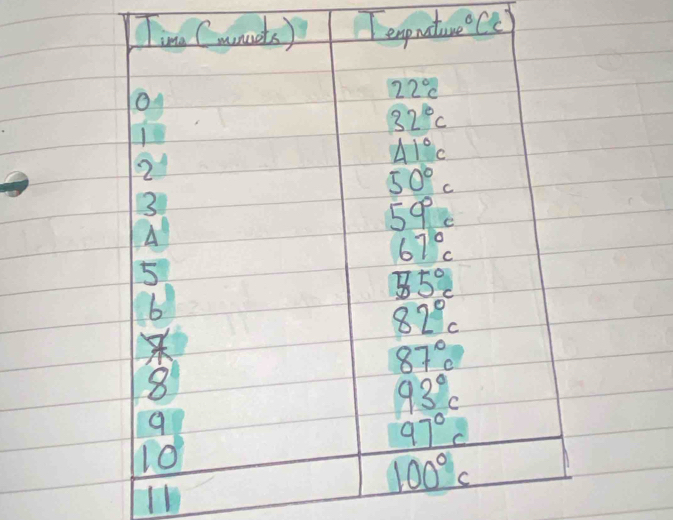 Time (minuets) Temprature °(c)
0 22°c
1 32°c
2 41°c
3 50°c
4 59°c
5 67°c
6 75°c
7 82°c
8 87°c
9 93°c
10 97°c
11 100°c